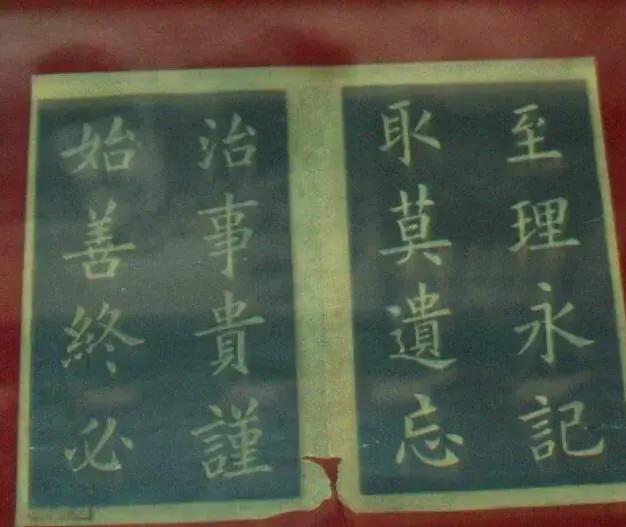 至理永記
取莫遺忘
治事貴謹
始善終必